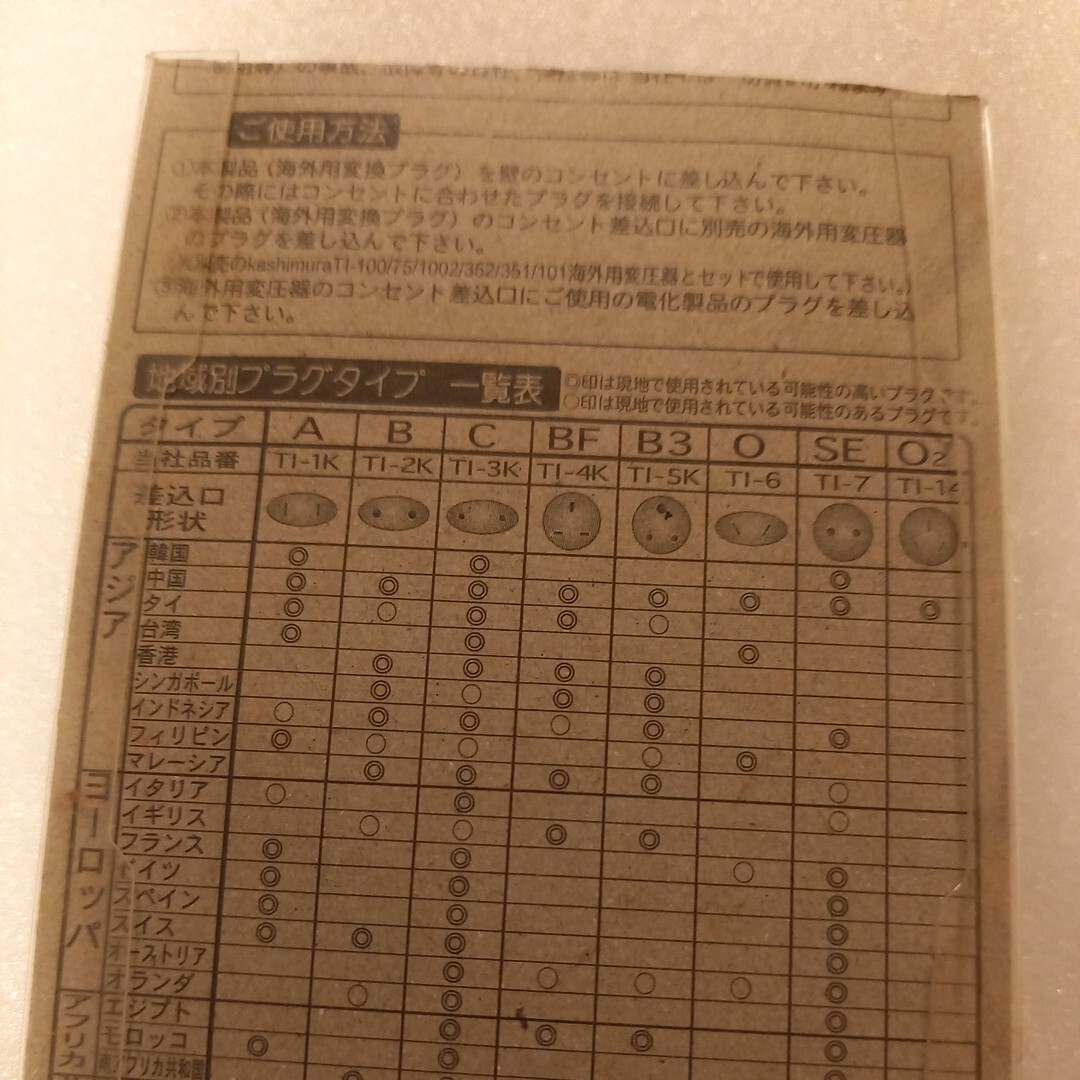 ご使用方法
①本製品(海外用変換プラグ)を壁のコンセントに差し込んで下さい。
その際にはコンセントに合わせたプラグを接続して下さい。
②本製品(海外用変換プラグ)のコンセント差込口に別売の海外用変圧器
のプラグを差し込んで下さい。
※別売のkashimuraTI-100/75/1002/352/351/101海外用変圧器とセットで使用して下さい。)
③海外用変圧器のコンセント差込口にご使用の電化製品のプラグを差し込
んで下さい。
地域別プラグタイプ 一覧表
◎印は現地で使用されている可能性の高いプラグです。
○印は現地で使用されている可能性のあるプラグです。
タイプ A B C BF B3 O SE O2
当社品番 TI-1K TI-2K TI-3K TI-4K TI-5K TI-6 TI-7 TI-14
差込口
形状
アジア
韓国 ◎ ◎ ◎
中国 ◎ ◎ ◎ ◎ ◎ ◎ ◎ ◎
タイ ◎ ○ ◎ ◎ ○
台湾 ◎ ◎ ◎
香港 ◎ ◎ ◎ ◎
シンガポール ◎ ○ ◎ ◎
インドネシア ○ ◎ ◎ ○ ◎
フィリピン ◎ ○ ○ ○ ◎ ◎
マレーシア ◎ ◎ ◎ ◎
ヨーロッパ
イタリア ○ ◎ ○
イギリス ○ ○ ◎ ◎
フランス ◎ ◎ ○ ◎
ドイツ ◎ ◎ ◎
スペイン ◎ ◎ ◎
スイス ◎ ◎ ◎ ◎
オーストリア ◎ ○ ○ ○ ◎
オランダ ○ ◎ ◎
アフリカ
エジプト ◎ ◎ ◎ ◎
モロッコ ◎ ◎
南アフリカ共和国